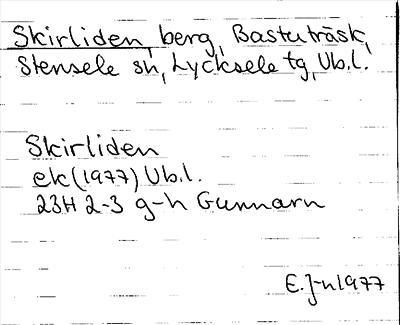 Skirliden, berg, Bastuträsk,
Stensele sn, Lycksele tg, Vb.l.
Skirliden
ek (1977) Vb.l.
23H 2-3 g-h Gunnarn
E. J-n 1977